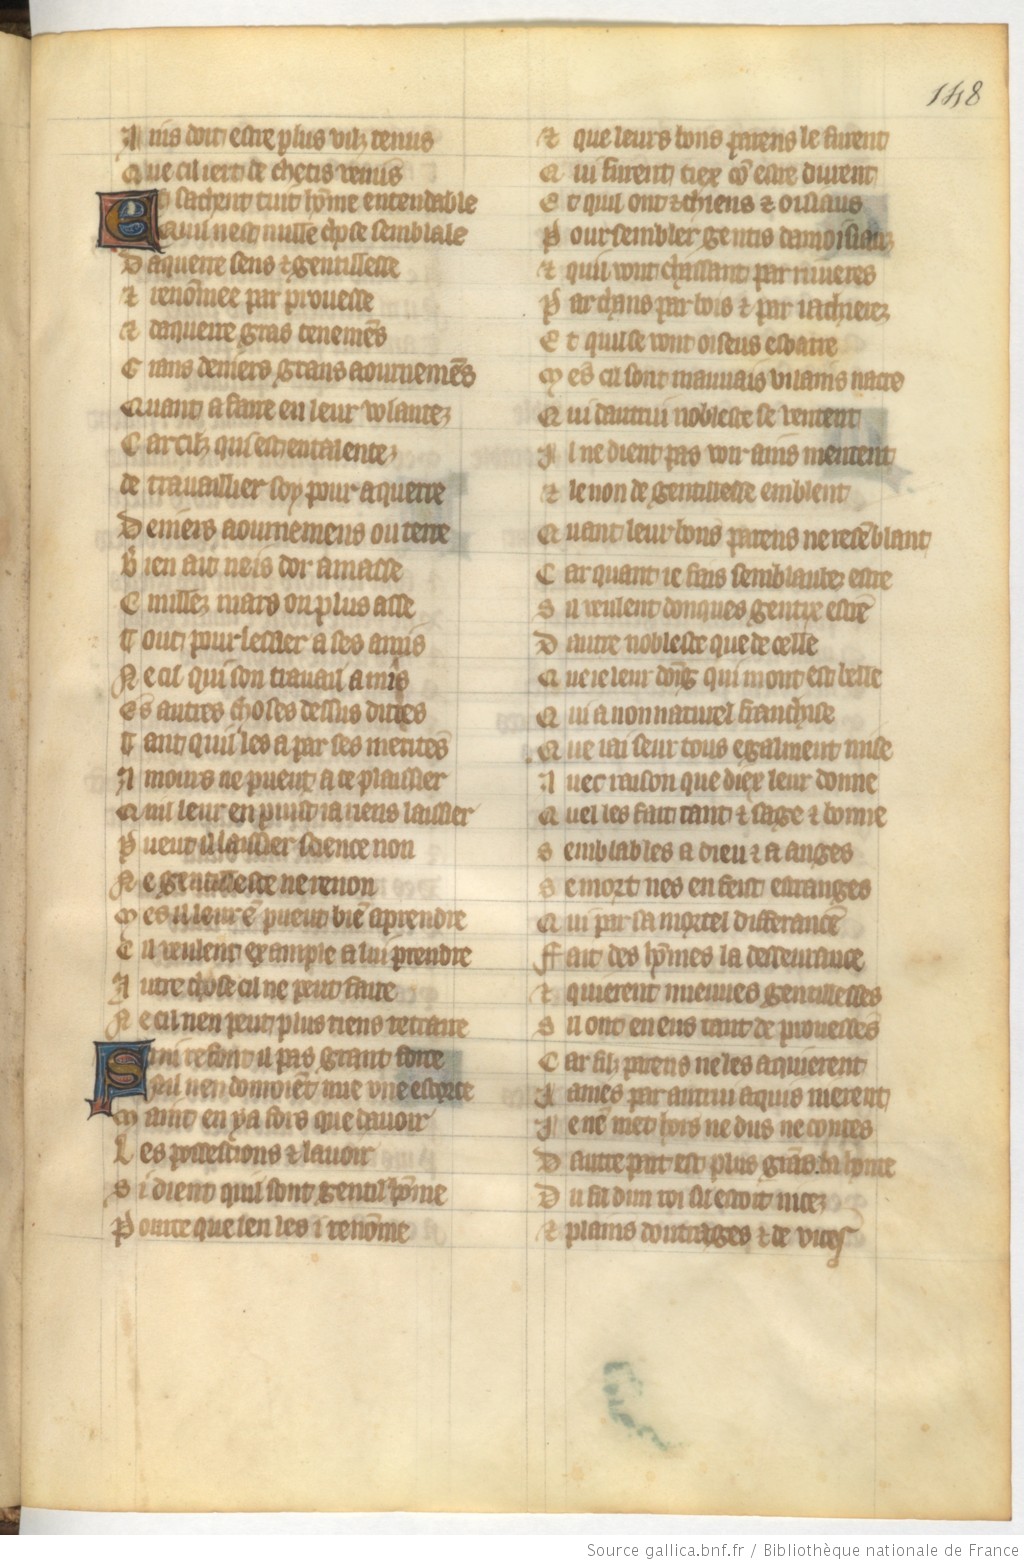 148
Ains doit estre plus vilz tenus
Que cil iert de chetis venus
Et sachent tuit hōme entendable
Quil nest nulle chose semblale
Daquerre sens ⁊ gentillesce
⁊ renōmee par prouesce
⁊ daquerre gras tenemēs
Grans deniers grans aournemēs
Quant a faire en leur volantez
Car cilz qui est entalentez
de travaillier soy pour aquerre
Deniers aournemens ou terre
Bien ait neis dor amasse
C millez mars ou plus asse
Tout pour lessier a ses amis
Ne cil qui son travail a mis
Es autres choses dessus dites
Tant quil les a par ses merites
Amours ne pueut a ce plaissier
Quil leur en puist ia riens laissier
Pueut il laissier science non
Ne gentillesce ne renon
Mes il leur ē pueut biē aprendre
Cil veulent example a lui prendre
Autre chose cil ne peut faire
Ne cil nen peut plus riens retraire
Si ni refont il pas grant force
Quil nen donroiēt mie vne escorce
Maint en ya fors que davoir
Les possessions ⁊ lavoir
Si dient quil sont gentil hōme
Pource que len les i renōme
⁊ que leurs bons parens le furent
Qui furent tiex cō estre durent
Et quil ont ⁊ chiens ⁊ oisiaus
Pour sembler gentis damoisiauz
⁊ quil vont chassant par rivieres
Par chans par bois ⁊ par iachierez
Et quil se vont oiseus esbatre
Mes cil sont mauvais vilains nastre
Qui dautrui noblesce se ventent
Il ne dient pas voir ains mentent
⁊ le non de gentillesce emblent
Quant leur bons parens ne resēblant
Car quant ie fais semblablez estre
Sil veulent donques gentix estrē
Dautre noblesce que de celle
Que ie leur dōig qui mout est belle
Qui a non naturel franchise
Que iai seur tous egalment mise
Avec raison que diex leur donne
Quel les fait tant ⁊ sage ⁊ bonne
Semblables a dieu ⁊ a anges
Se mort nes en feist estranges
Qui par sa mortel differance
Fait des hōmes la dessevrance
⁊ quierent nueuves gentillesses
Sil ont en eus tant de prouesses
Car silz parens ne les aquierent
Iames par autrui aquis nierent
Ie nē met hors ne dus ne contes
Dautre part est plus grās honte
Du fil dun roi sil estoit nicez
⁊ plains doutrages ⁊ de vices
Source gallica.bnf.fr / Bibliothèque nationale de France